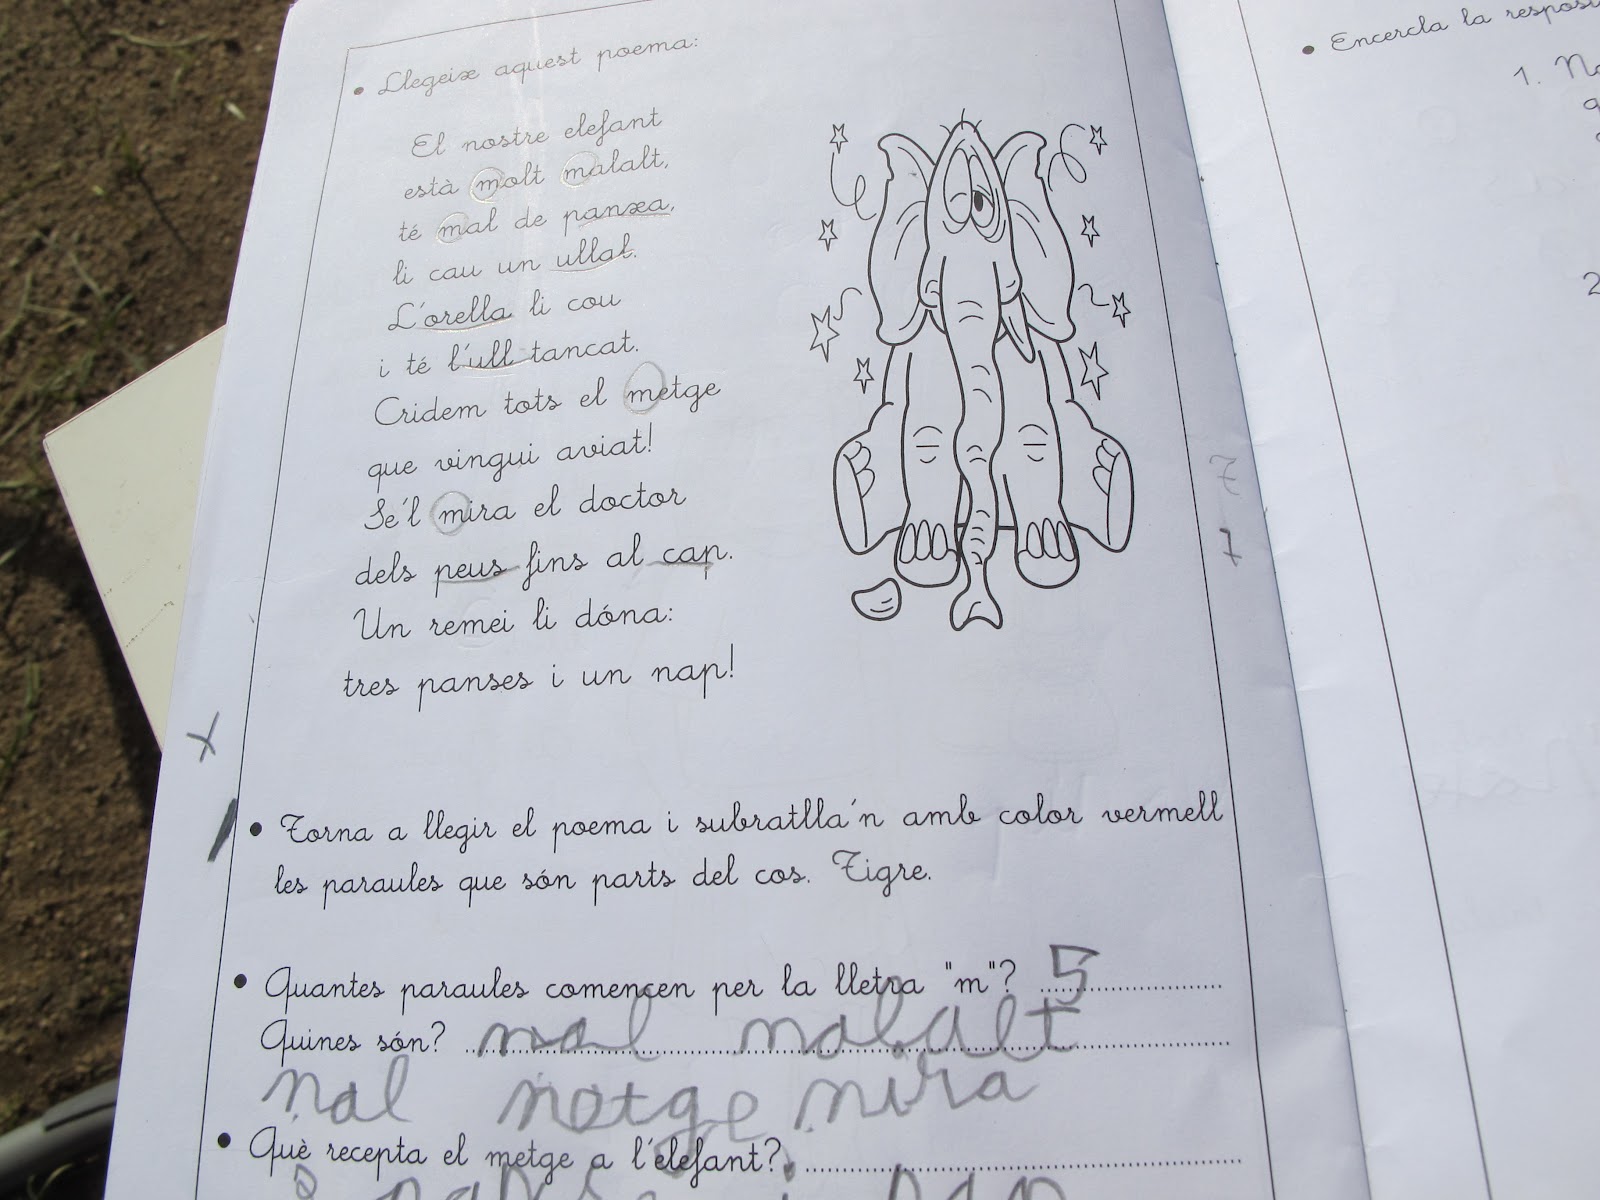 Llegeix aquest poema:
El nostre elefant
està molt malalt,
té mal de panxa,
li cau un ullal.
L'orella li cou
i té l'ull tancat.
Cridem tots el metge
que vingui aviat!
Se'l mira el doctor
dels peus fins al cap.
Un remei li dóna:
tres panses i un nap!
Torna a llegir el poema i subratlla'n amb color vermell
les paraules que són parts del cos. Tigre.
Quantes paraules comencen per la lletra "m"? 5
Quines són? mal malalt
mal metge mira
Què recepta el metge a l'elefant?
i nap
Encercla la
1.
2
7
7
x